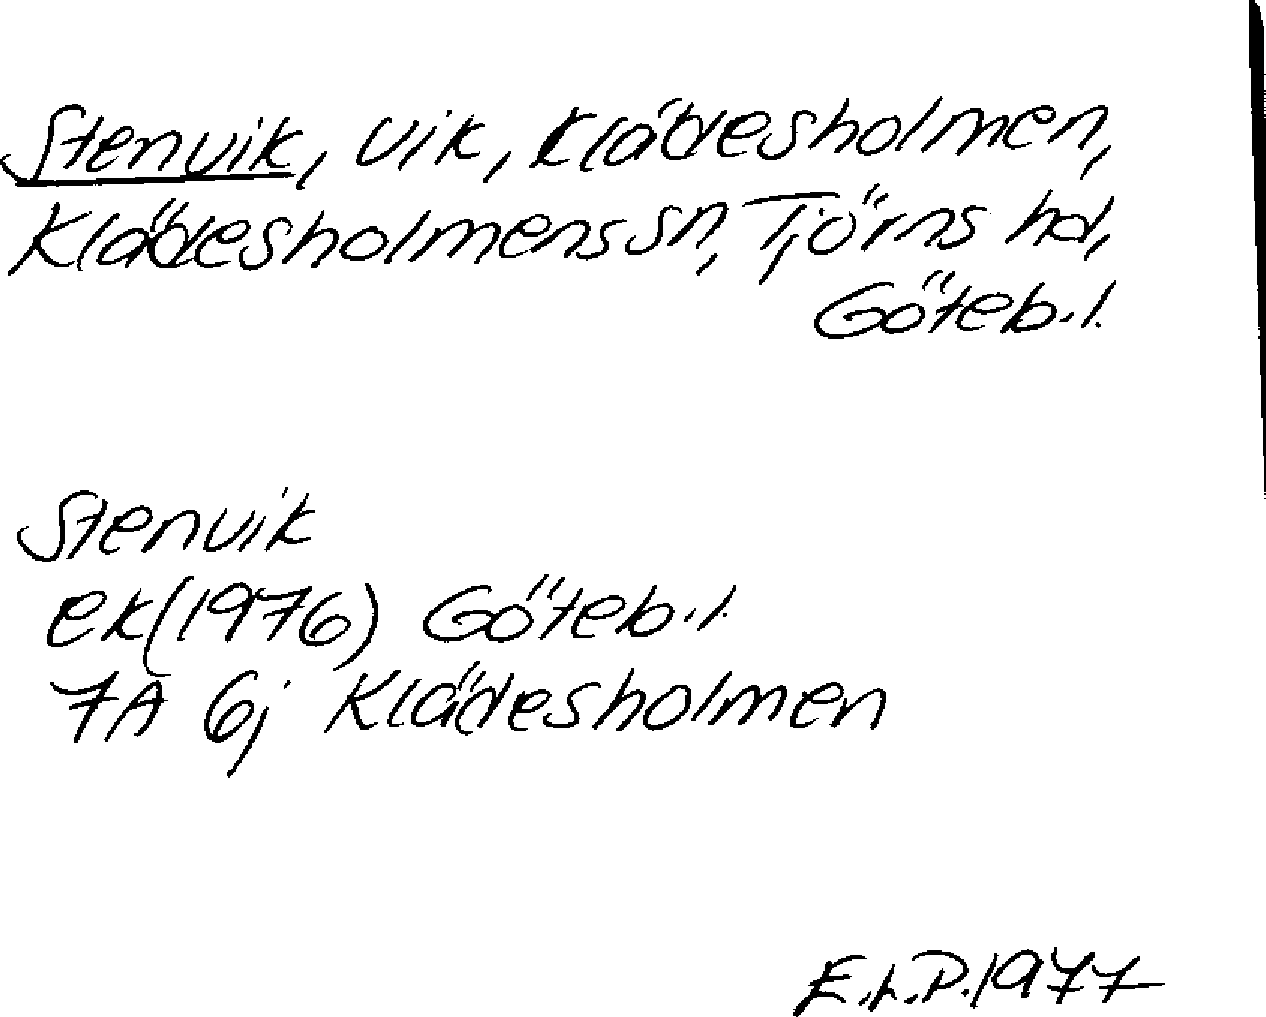 Stenvik, vik, Klädesholmen,
Klädesholmens sn, Tjörns hd,
Göteb.l.
Stenvik
ek(1976) Göteb.l.
7A 6j Klädesholmen
E.L.P.1977